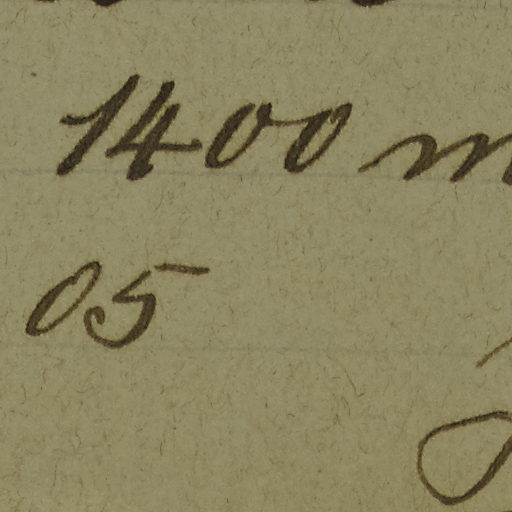 1400 m
05